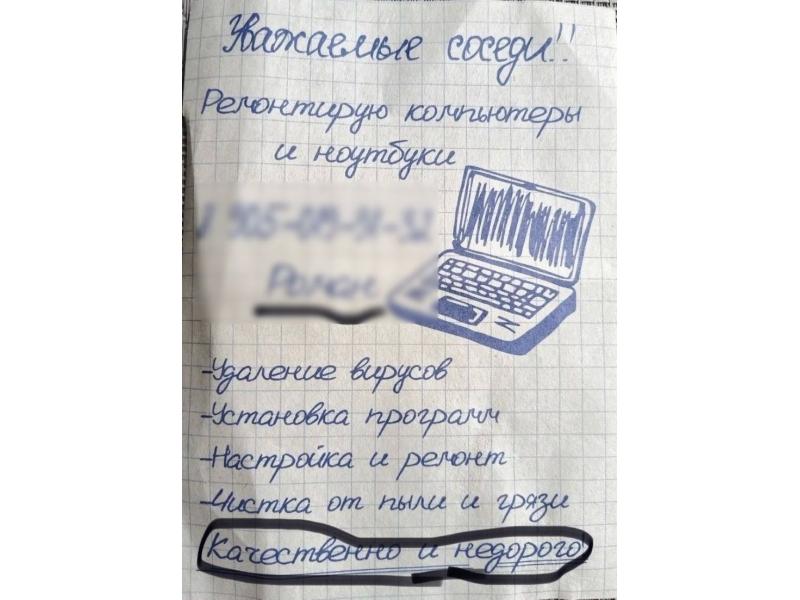 Уважаемые соседи!!
Ремонтирую компьютеры
и ноутбуки
-Удаление вирусов
-Установка программ
-Настройка и ремонт
-Чистка от пыли и грязи
Качественно и недорого